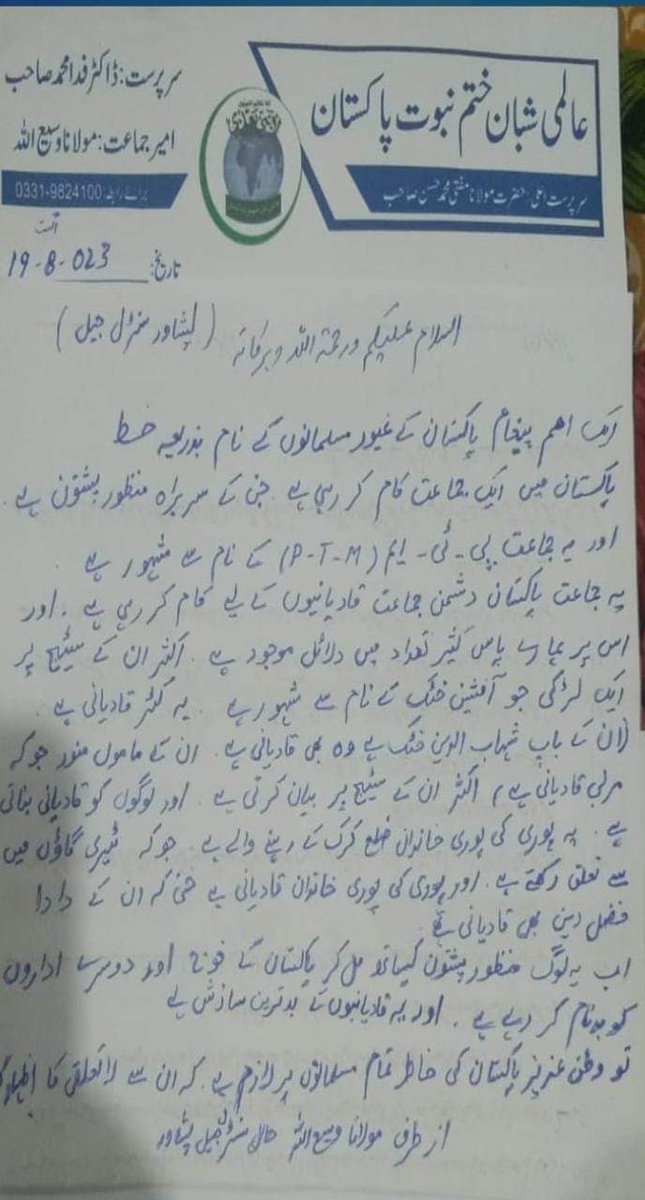 عالمی شبان ختم نبوت پاکستان
سرپرست اعلیٰ: حضرت مولانا مفتی محمد حسن صاحب
سرپرست: ڈاکٹر فدا محمد صاحب
امیر جماعت: مولانا وسیع اللہ
برائے رابطہ: 0331-9824100
اگست
تاریخ: 19-8-023
السلام علیکم ورحمۃ اللہ وبرکاتہ (پشاور سنٹرل جیل)
ایک اہم پیغام پاکستان کے غیور مسلمانوں کے نام بذریعہ خط
پاکستان میں ایک جماعت کام کر رہی ہے جن کے سربراہ منظور پشتون ہے.
اور یہ جماعت پی-ٹی-ایم (P-T-M) کے نام سے مشہور ہے.
یہ جماعت پاکستان دشمن جماعت قادیانیوں کے لیے کام کر رہی ہے. اور
اس پر ہمارے پاس کثیر تعداد میں دلائل موجود ہے. اکثر ان کے سٹیج پر
ایک لڑکی جو آفشین خٹک کے نام سے شہور ہے. یہ کٹر قادیانی ہے.
(ان کے باپ شہاب الدین خٹک ہے وہ بھی قادیانی ہے. ان کے ماموں منور جو کہ
مربی قادیانی ہے) اکثر ان کے سٹیج پر بیان کرتی ہے. اور لوگوں کو قادیانی بناتی
ہے. یہ پوری کی پوری خاندان ضلع کرک کے رہنے والے ہے. جو کہ ٹیری گاؤں میں
سے تعلق رکھتے ہے. اور پوری کی پوری خاندان قادیانی ہے حتیٰ کہ ان کے دادا
فضل دین بھی قادیانی ہے.
اب یہ لوگ منظور پشتون کیساتھ مل کر پاکستان کے فوج اور دوسرے اداروں
کو بدنام کر رہے ہے. اور یہ قادیانیوں کے بدترین سازش ہے
تو وطن عزیز پاکستان کی خاطر تمام مسلمانوں پر لازم ہے. کہ ان سے لاتعلقی کا
از طرف مولانا وسیع اللہ حال سنٹرل جیل پشاور